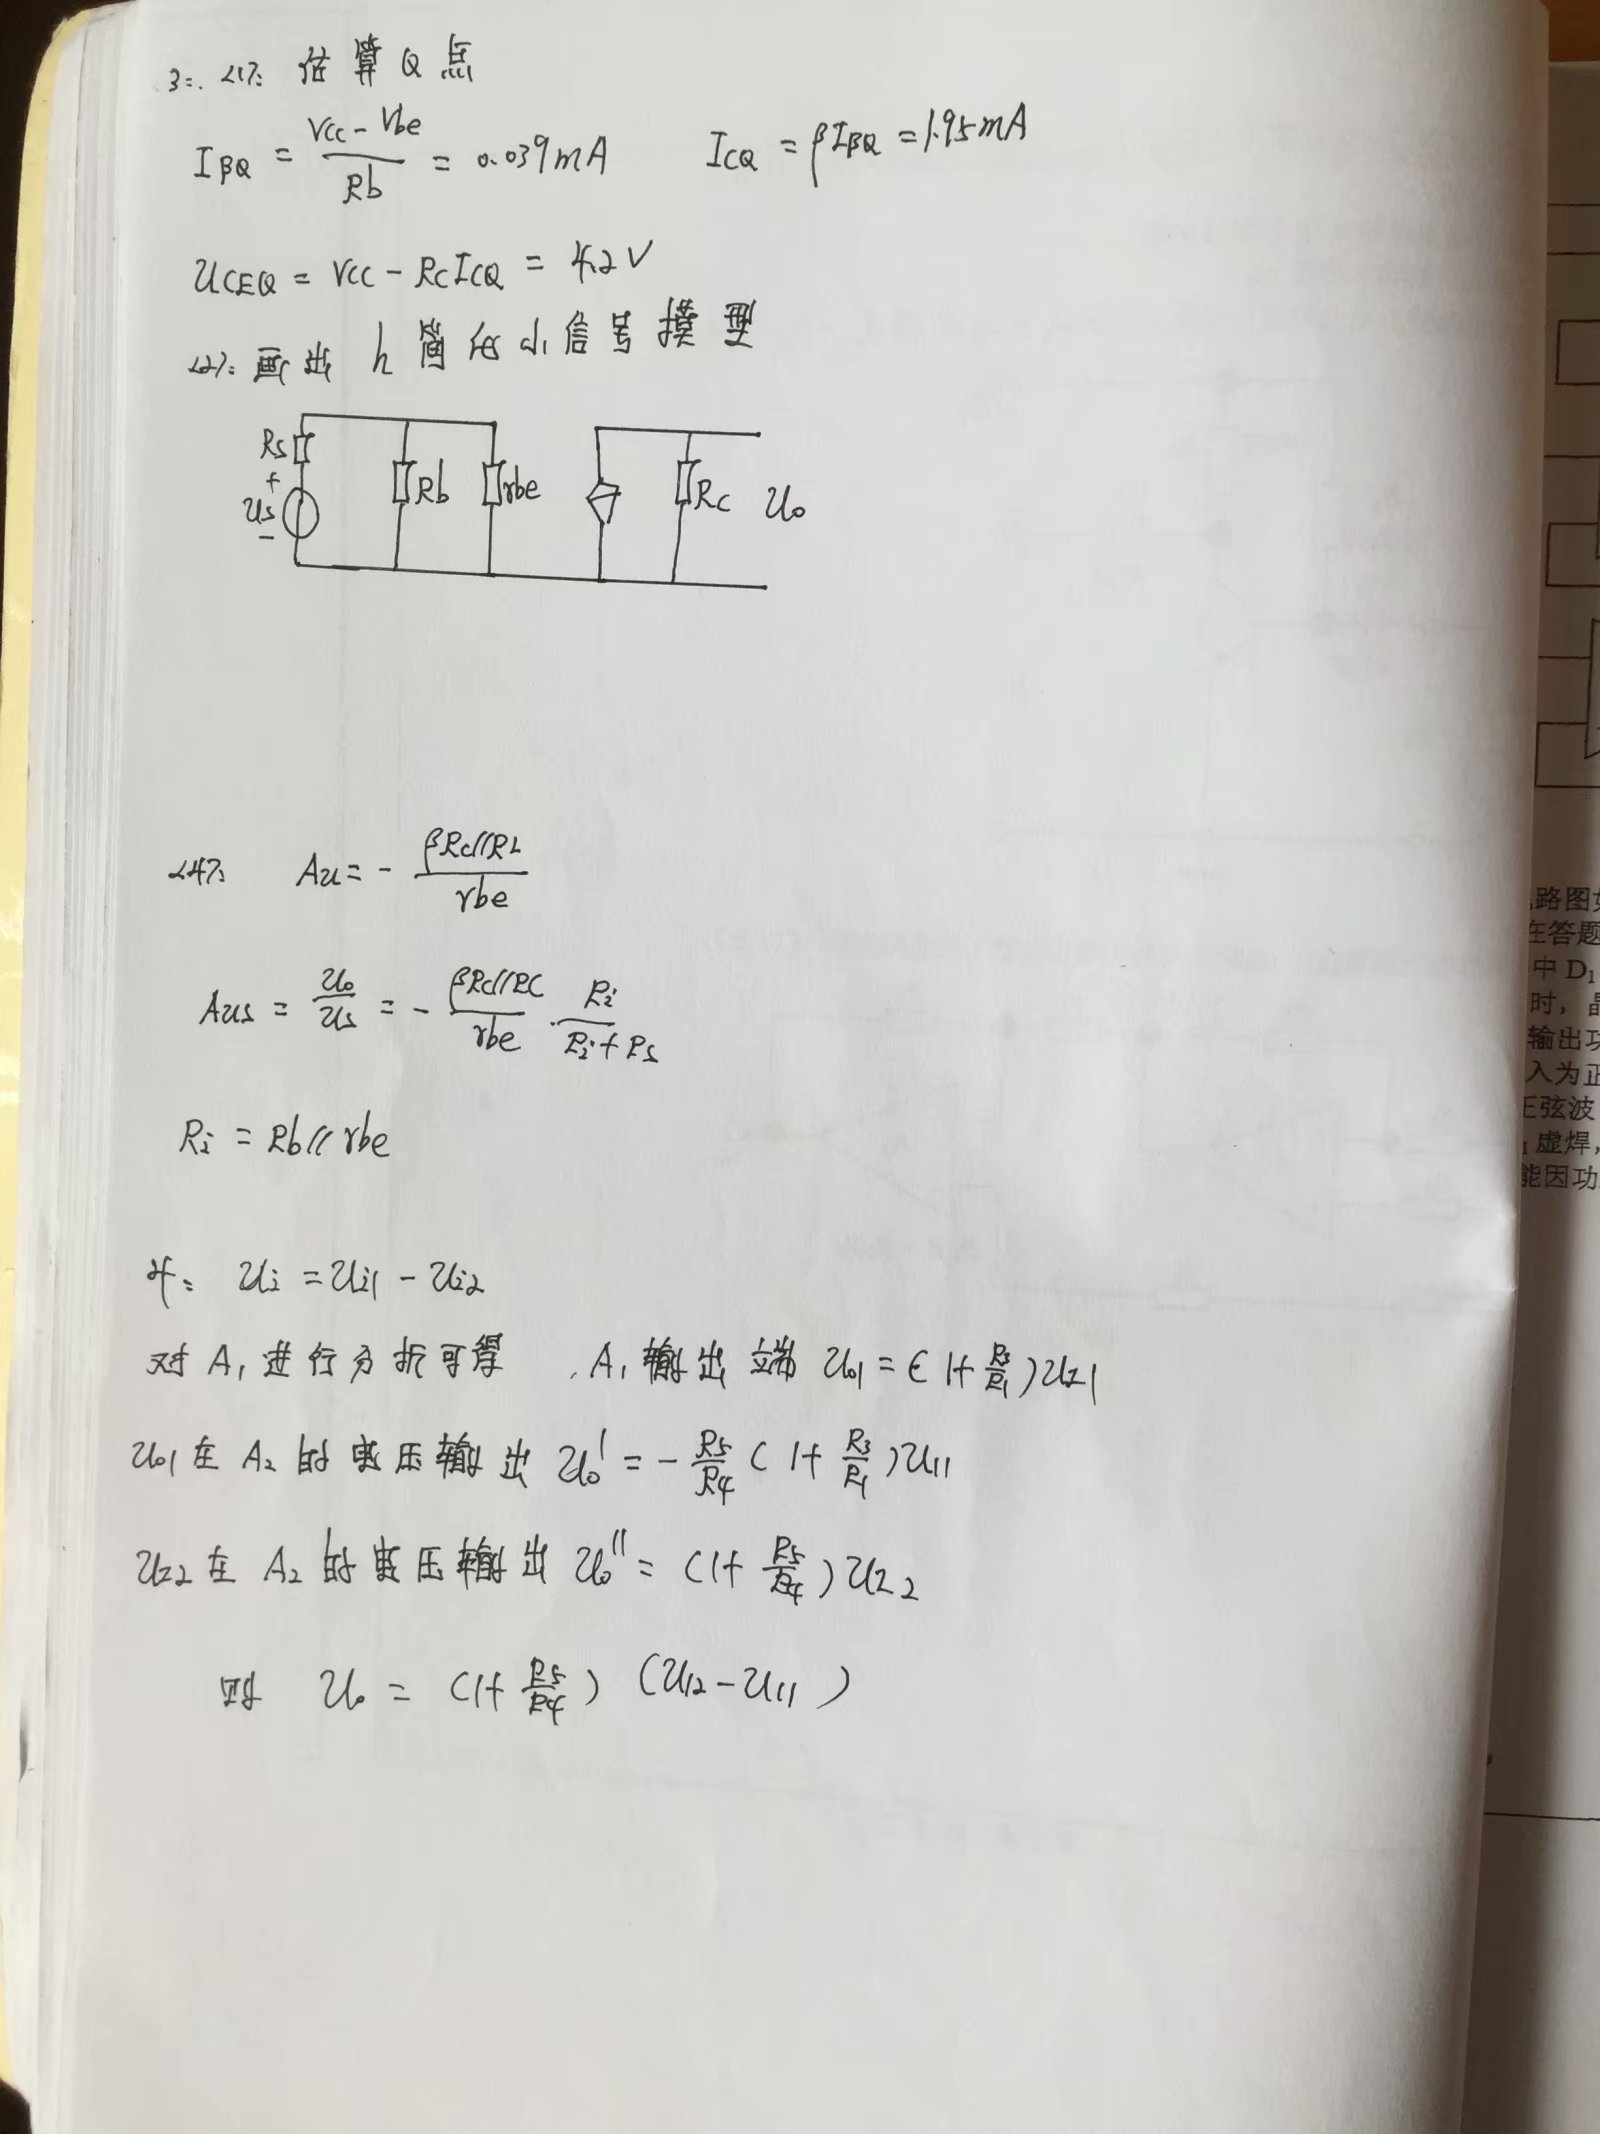 3:. <1>: 估算Q点
IBQ = (Vcc - Vbe)/Rb = 0.039mA ICQ = βIBQ = 1.95mA
UCEQ = VCC - RcICQ = 4.2V
<2>: 画出 h 简化小信号模型
Rs
+
Us
-
Rb
rbe
Rc
Uo
<4>: Au = - βRc//RL/rbe
Aus = Uo/Us = - βRc//RC/rbe · Ri/(Ri + Rs)
Ri = Rb // rbe
4: Ui = Ui1 - Ui2
对A1进行分析可得 , A1输出端 Uo1 = (1 + R3/R1)UI1
Uo1在A2的电压输出 Uo' = - R5/R4 (1 + R3/R1)UI1
UI2在A2的电压输出 Uo'' = (1 + R5/R4)UI2
则 Uo = (1 + R5/R4) (UI2 - UI1)
路图
在答题
中 D1
时，
输出功
入为正
正弦波
虚焊，
能因功